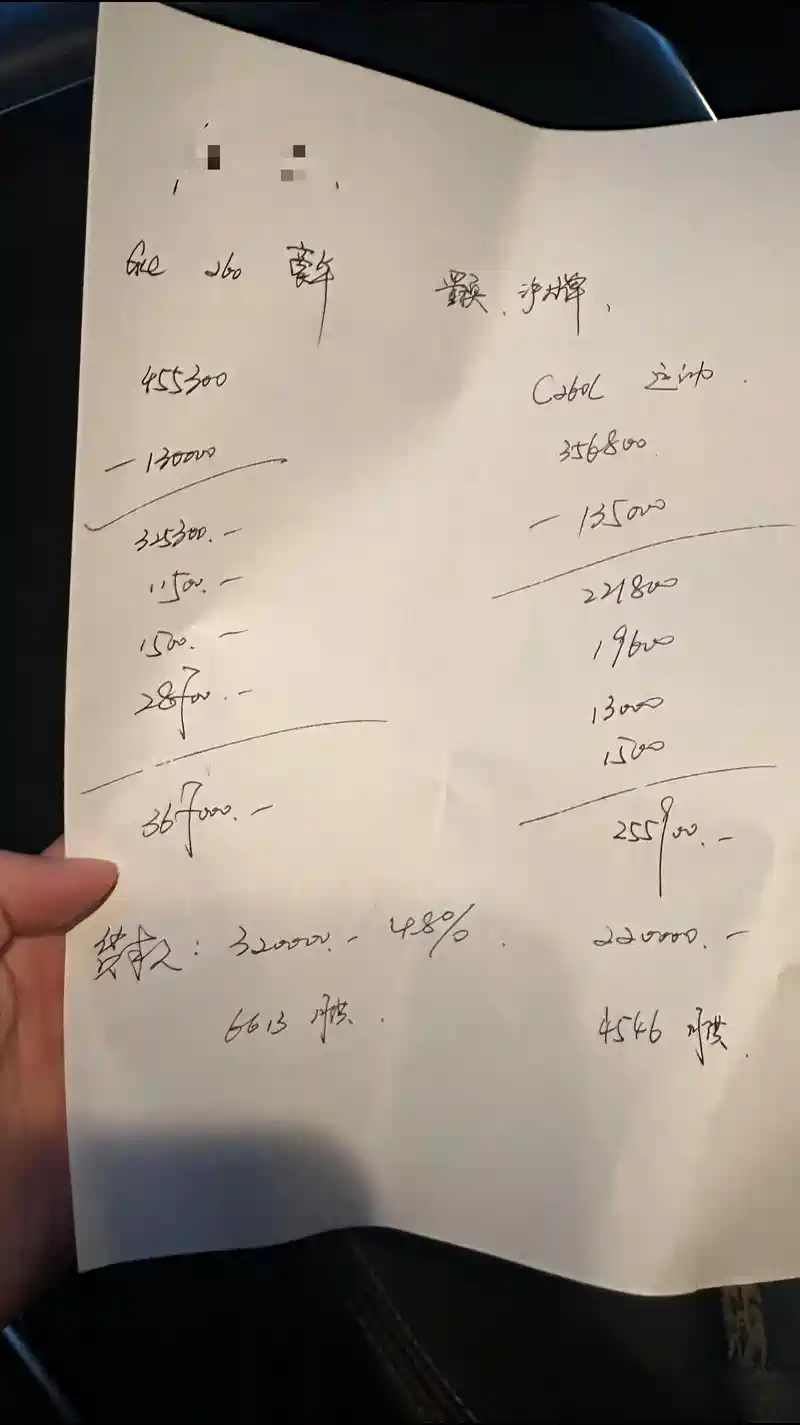 GLC 260 豪华
455300
-130000
325300.-
11500.-
1500.-
28700.-
367000.-
贷款: 320000.- 4.8%.
6613 月供.
置换、沪牌、
C260L 运动.
356800
-135000
221800
19600
13000
1500
255900.-
220000.-
4546 月供.